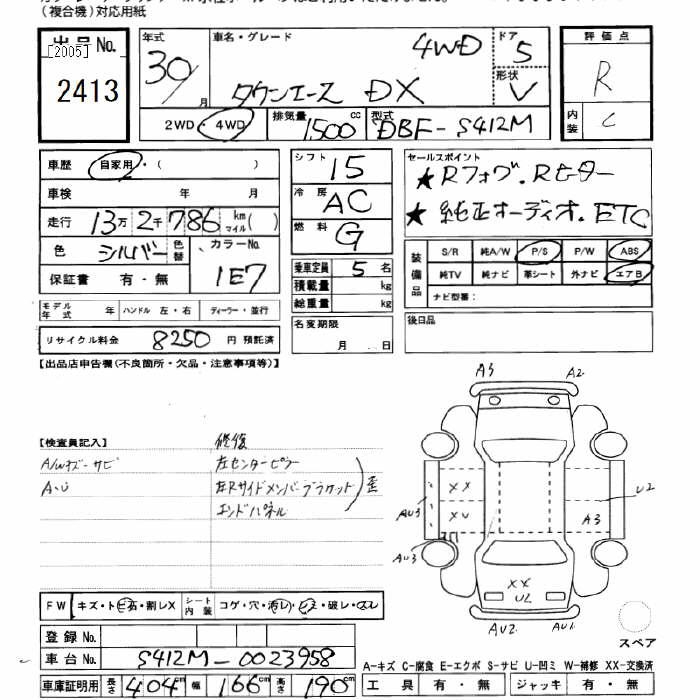 (複合機)対応用紙
出品No.
[2005]
2413
年式 30/ 月
車名・グレード 4WD
タウンエース DX
ドア 5
形状 V
2WD・4WD
排気量 1500 cc
型式 DBF-S412M
評価点
R
内装 C
車歴 自家用・( )
車検 年 月
走行 13万 2千 786 km マイル( )
色 シルバー 色替 カラーNo. 1E7
保証書 有・無
モデル年式 年 ハンドル 左・右 ディーラー・並行
リサイクル料金 8250 円 預託済
シフト 15
冷房 AC
燃料 G
乗車定員 5 名
積載量 kg
総重量 kg
名変期限
月 日
セールスポイント
★Rフォグ.Rヒーター
★純正オーディオ.ETC
装備品 S/R 純A/W P/S P/W ABS
純TV 純ナビ 革シート 外ナビ エアB
ナビ型番:
後日品
【出品店申告欄(不良箇所・欠品・注意事項等)】
【検査員記入】
修復
A/Wキズ-サビ
左センターピラー
A・U
左Rサイドメンバーブラケット 歪
エンドパネル
A3 A2
XX
XU
AU3
AU3
U2
A3
XX
U2
AU2 AU1
スペア
FW キズ・トビ石・割レX シート内装 コゲ・穴・汚レ・シミ・破レ・スレ
登録No.
車台No. S412M-0023958
車庫証明用 長さ 404cm 幅 166cm 高さ 190cm
A-キズ C-腐食 E-エクボ S-サビ U-凹ミ W-補修 XX-交換済
工具 有・無 ジャッキ 有・無